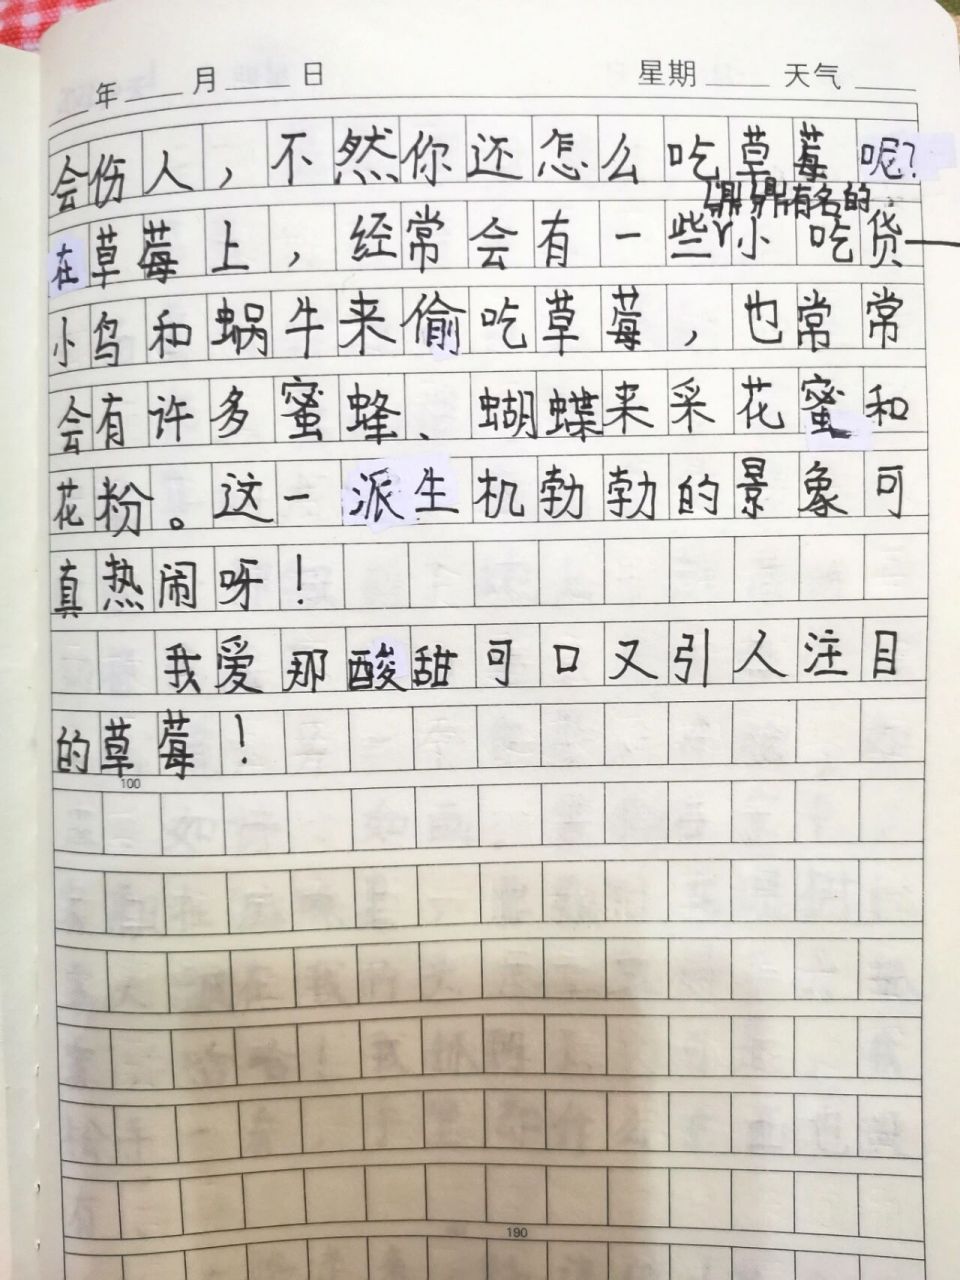 年 月 日 星期 天气
会伤人，不然你还怎么吃草莓呢？
鼎鼎有名的
在草莓上，经常会有一些小吃货——
小鸟和蜗牛来偷吃草莓，也常常
会有许多蜜蜂、蝴蝶来采花蜜和
花粉。这一派生机勃勃的景象可
真热闹呀！
我爱那酸甜可口又引人注目
的草莓！
100
190